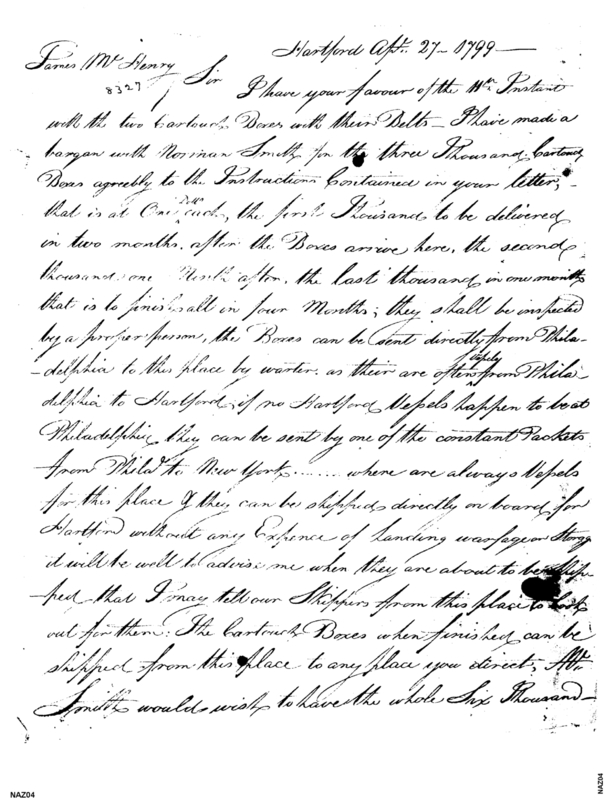 Hartford Apr. 27 - 1799 —
James Mc Henry
8327
Sir
I have your favour of the 11th Instant
with the two Cartouch Boxes with their Belts - I have made a
bargan with Norman Smith for the three Thousand Cartouch
Boxes agreebly to the Instructions Containd in your letter, -
that is at One Dollr each, the first Thousand to be delivered
in two months, after the Boxes arrive here, the second
thousand one Month after, the last thousand in one month
that is to finish all in four Months; they shall be inspected
by a proper person, the Boxes can be sent directly from Phila-
-delphia to this place by warter, as their are often Vessels from Phila
delphia to Hartford, if no Hartford Vessels happen to be at
Philadelphia, they can be sent by one of the constant Packets
from Philad. to New York ........ where are always Vessels
for this place & they can be shipped directly on board for
Hartford without any Expence of Landing warfage or Storage
it will be well to advise me when they are about to be ship-
-ped that I may tell our Skippers from this place to look
out for them. The Cartouch Boxes when finished can be
shipped from this place to any place you direct; Mr.
Smith would wish to have the whole Six Thousand -
NAZ04
NAZ04